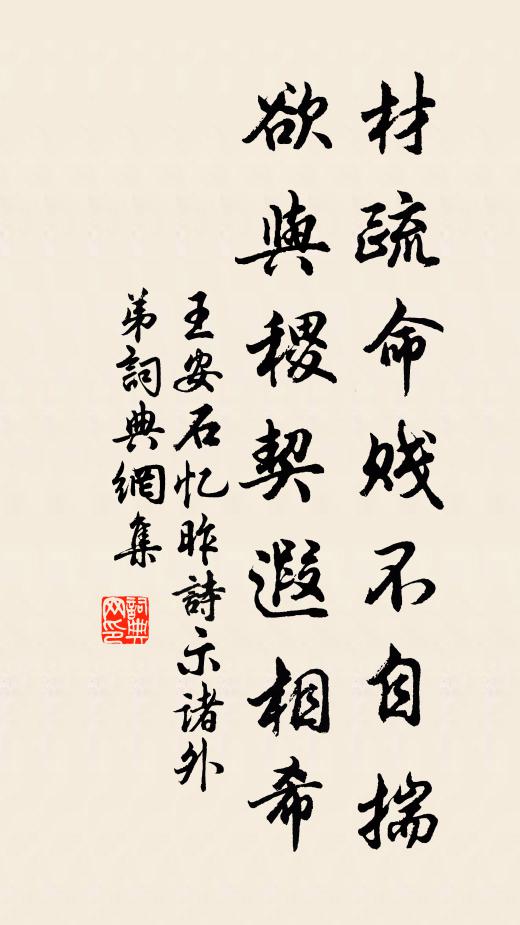 材疏命贱不自揣
欲與稷契遐相希
王安石忆昨詩示诸外
弟詞典網集
詞典
网印